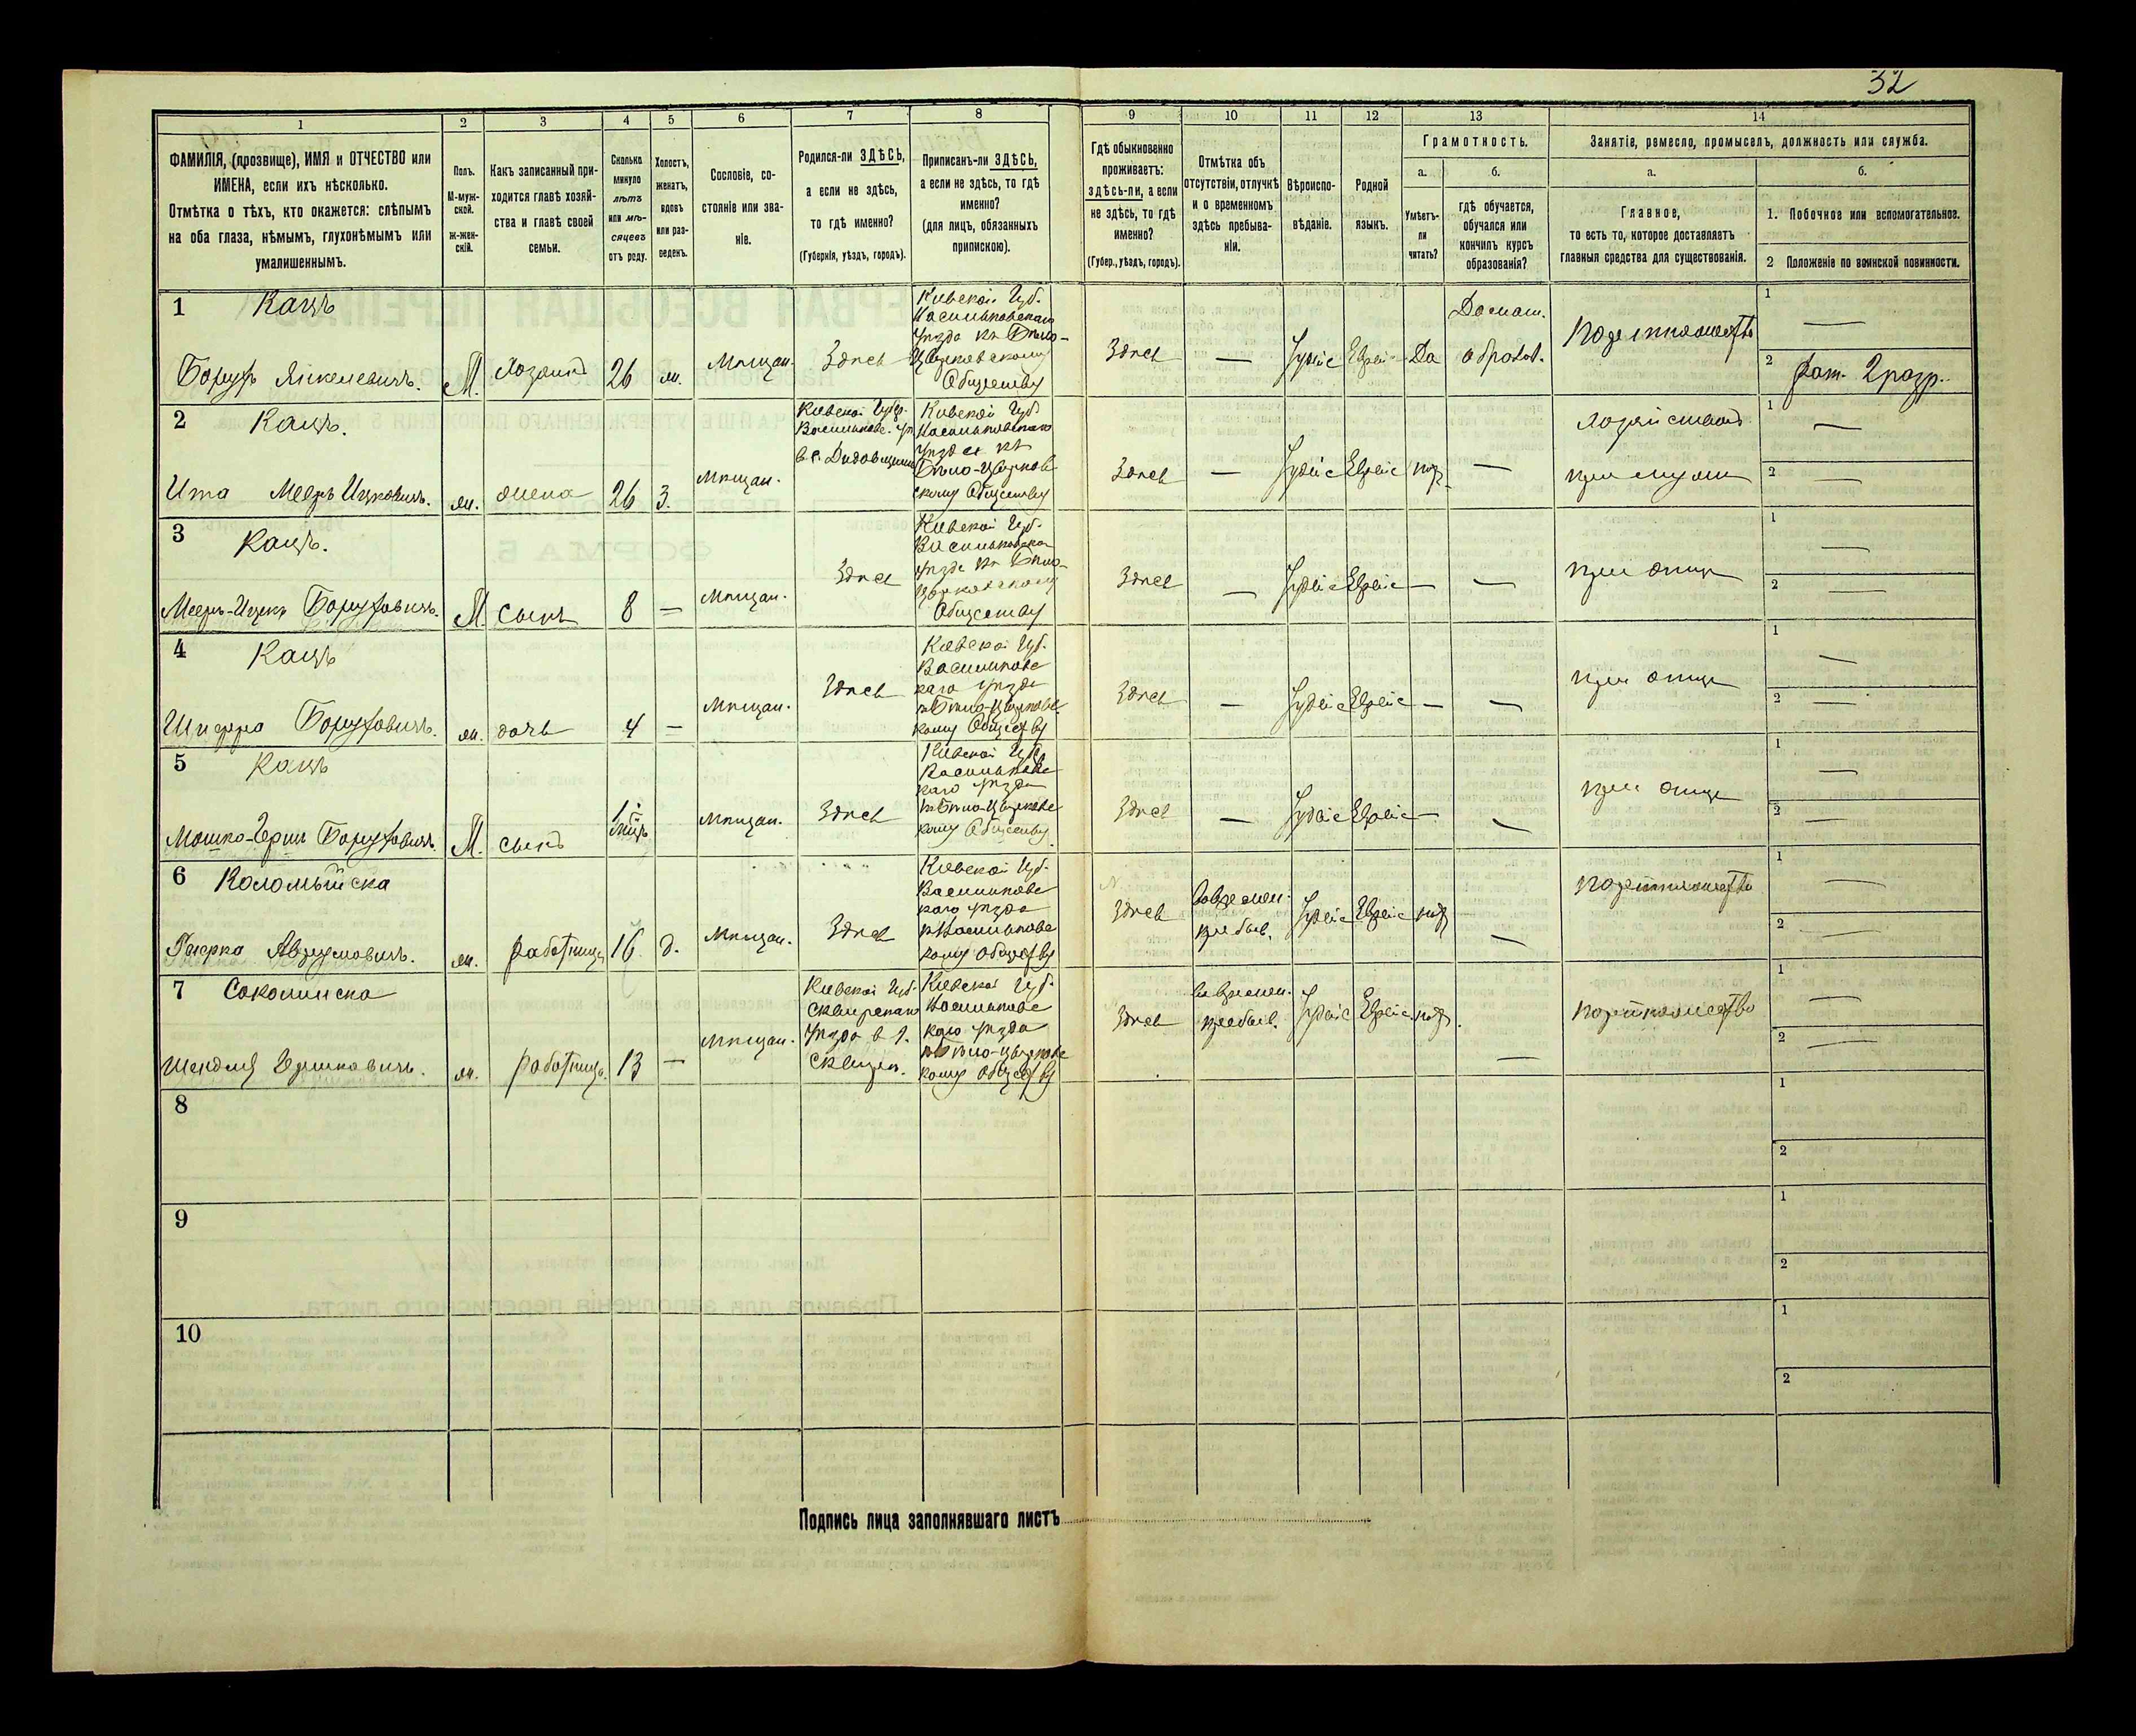 32
1 2 3 4 5 6 7 8 9 10 11 12 13 14
ФАМИЛІЯ, (прозвище), ИМЯ и ОТЧЕСТВО или
ИМЕНА, если ихъ нѣсколько.
Отмѣтка о тѣхъ, кто окажется: слѣпымъ
на оба глаза, нѣмымъ, глухонѣмымъ или
умалишеннымъ.
Полъ.
М-муж-
ской.
Ж-жен-
скій.
Какъ записанный при-
ходится главѣ хозяй-
ства и главѣ своей
семьи.
Сколько
минуло
лѣтъ
или мѣ-
сяцевъ
отъ роду.
Холостъ,
женатъ,
вдовъ
или раз-
веденъ.
Сословіе, со-
стояніе или зва-
ніе.
Родился-ли ЗДѢСЬ,
а если не здѣсь,
то гдѣ именно?
(Губернія, уѣздъ, городъ).
Приписанъ-ли ЗДѢСЬ,
а если не здѣсь, то гдѣ
именно?
(для лицъ, обязанныхъ
припискою).
Гдѣ обыкновенно
проживаетъ:
здѣсь-ли, а если
не здѣсь, то гдѣ
именно?
(Губер., уѣздъ, городъ).
Отмѣтка объ
отсутствіи, отлучкѣ
и о временномъ
здѣсь пребыва-
ніи.
Вѣроиспо-
вѣданіе.
Родной
языкъ.
Грамотность.
а.
Умѣетъ-
ли
читать?
б.
гдѣ обучается,
обучался или
кончилъ курсъ
образованія?
Занятіе, ремесло, промыселъ, должность или служба.
а.
Главное,
то есть то, которое доставляетъ
главныя средства для существованія.
б.
1. Побочное или вспомогательное.
2 Положеніе по воинской повинности.
1 Кацъ
Борухъ Янкелевичъ. М. Хозяинъ 26 ж. Мѣщан. Здѣсь
Кіевской Губ.
Васильковскаго
уѣзда къ Бѣло-
Церковскому
Обществу
Здѣсь — Іудейс Еврейс Да
Домаш.
образов.
1 —
2 Рат. 2 разр.
2 Кацъ.
Ита Мееръ Ицковичъ. ж. жена 26 З. Мѣщан.
Кіевской Губер.
Васильковс. у
Кіевской Губ
Васильковскаго
уѣзда къ
Бѣло-Церков
скому Обществу
Здѣсь — Іудейс Еврейс —
1 —
2 —
3 Кацъ.
Мееръ-Ицекъ Боруховичъ. М. сынъ 8 — Мѣщан. Здѣсь
Кіевской Губ.
Васильковска
уѣзда къ Бѣло-
Церковскому
Обществу
Здѣсь — Іудейс Еврейс — — при отцѣ
1 —
2 —
4 Кацъ
Шифра Боруховичъ. ж. дочь 4 — Мѣщан. Здѣсь
Кіевской Губ.
Васильковс
каго уѣзда
къ Бѣло-Церковс
кому Обществу
Здѣсь — Іудейс Еврейс — — при отцѣ
1 —
2 —
5 Кацъ
Мошко-Герш Боруховичъ. М. сынъ Мѣщан. Здѣсь
Кіевской Губ.
Васильковс
каго уѣзда
къ Бѣло-Церковс
кому Обществу
Здѣсь — Іудейс Еврейс — — при отцѣ
1 —
2 —
6 Коломыйска
Аврумовичъ. ж. работница 16 д. Мѣщан. Здѣсь
Кіевской Губ.
Васильковс
каго уѣзда
къ Васильковс
кому Обществу
Здѣсь
времен.
пребыв.
Іудейс Еврейс — портняжество
1 —
2 —
7 Соколинска
Шейдля Гершковичъ. ж. работница 13 — Мѣщан.
Кіевской Губ.
Сквирскаго
уѣзда в г.
Сквирѣ.
Кіевской Губ.
Васильковс
каго уѣзда
къ Бѣло-Церковс
кому Обществу
Здѣсь
времен.
пребыв.
Іудейс Еврейс — портняжество
1 —
2 —
8 1 2
9 1 2
10 1 2
Подпись лица заполнявшаго листъ